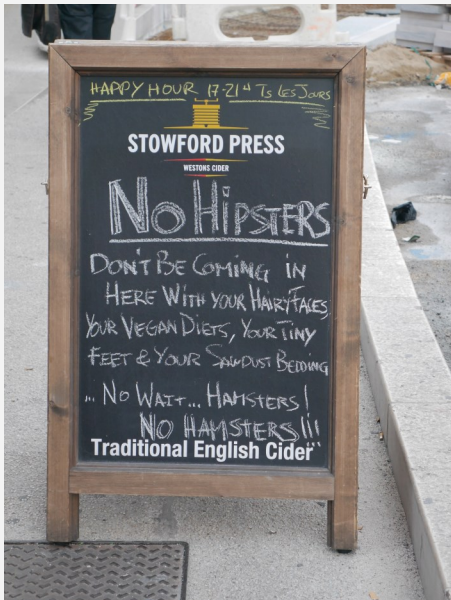 HAPPY HOUR 17-21H Ts LES JOURS
STOWFORD PRESS
WESTONS CIDER
NO HIPSTERS
DON'T BE COMING IN
HERE WITH YOUR HAIRY FACES,
YOUR VEGAN DIETS, YOUR TINY
FEET & YOUR SAWDUST BEDDING
... NO WAIT... HAMSTERS!
NO HAMSTERS!!!
Traditional English Cider